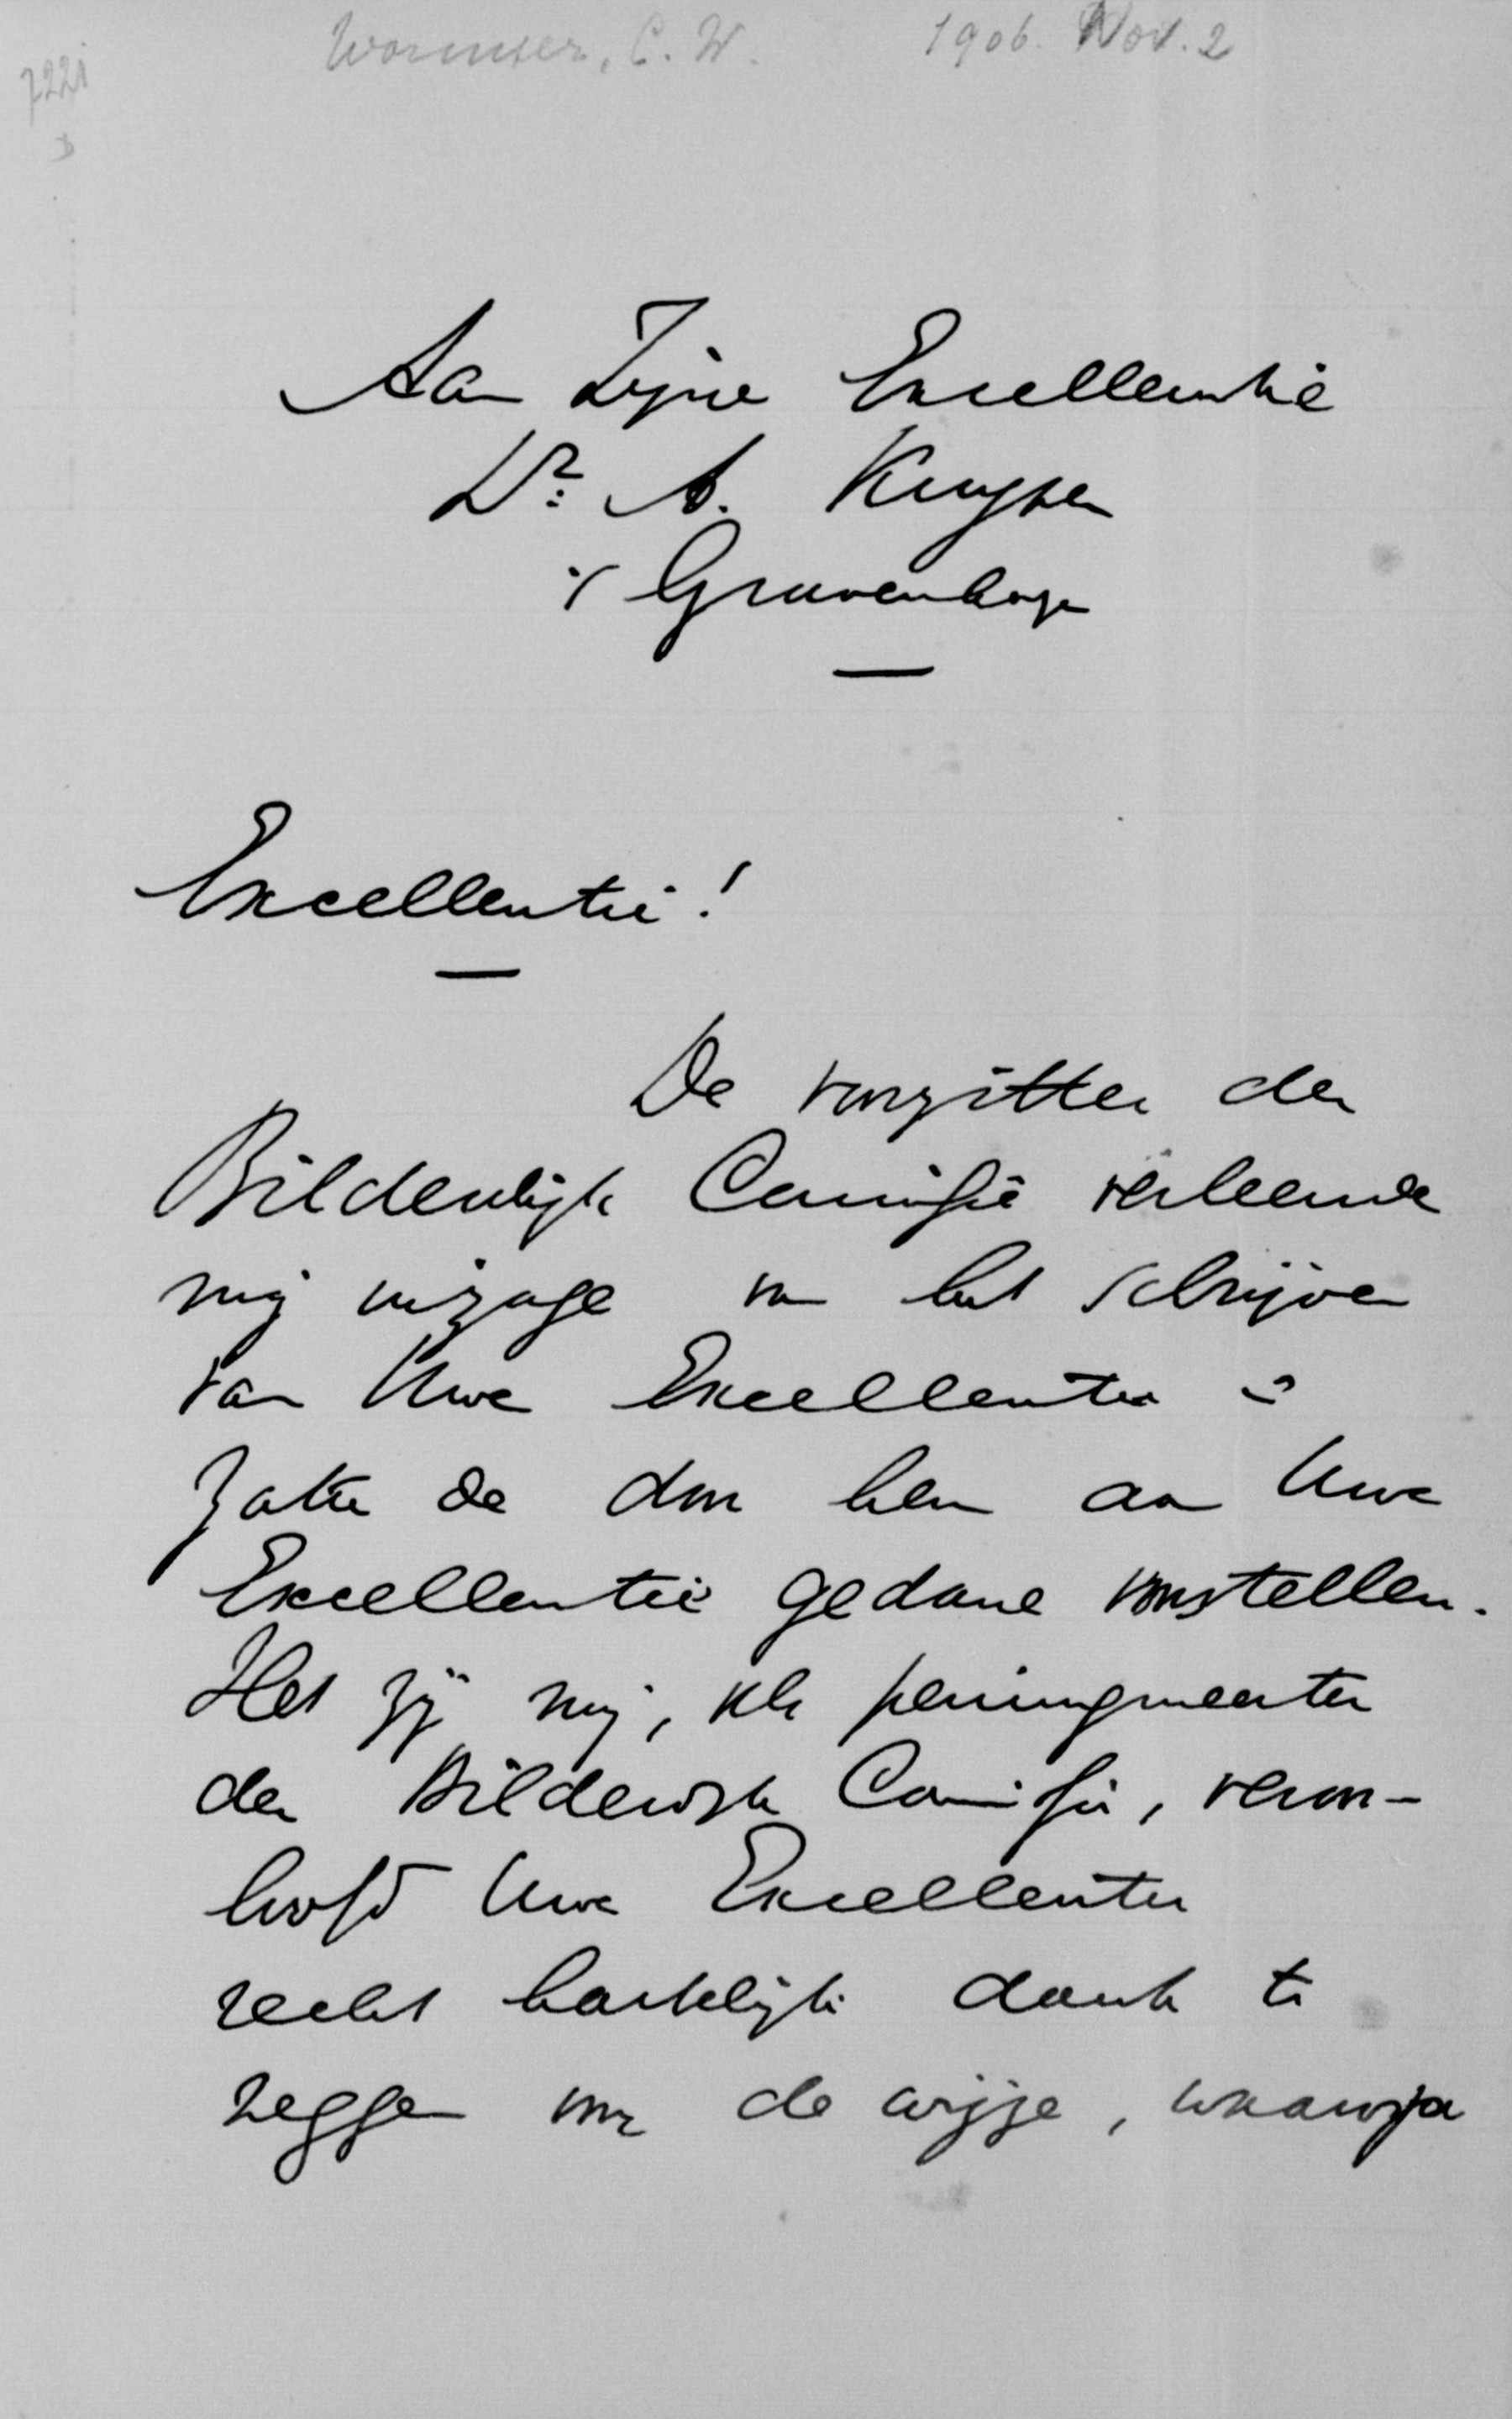 Wormser, C. W. 1906. Nov. 2
7221
Aan Zijne Excellentie
Dr. A. Kuyper
's Gravenhage
Excellentie!
De voorzitter der
Bilderdijk Commissie verleende
mij inzage van het schrijven
van Uwe Excellentie in
zake de door hem aan Uwe
Excellentie gedane voorstellen.
Het zij mij, als penningmeester
der Bilderdijk Commissie, veroor-
loofd Uwe Excellentie
recht hartelijk dank te
zeggen voor de wijze, waarop